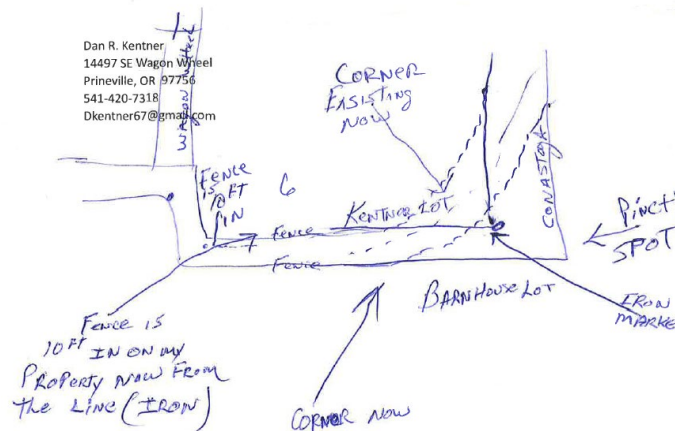 Dan R. Kentner
14497 SE Wagon Wheel
Prineville, OR 97756
541-420-7318
Dkentner67@gmail.com
WAGON Wheel
CORNER
EXSISTING
NOW
FENCE
IS
10 FT
IN
6
KENTNER LOT
FENCE
FENCE
CONASTOGA
PINCH
SPOT
BARNHOUSE LOT
IRON
MARKE
FENCE IS
10 FT IN ON MY
PROPERTY NOW FROM
the LINE (IRON)
CORNER NOW